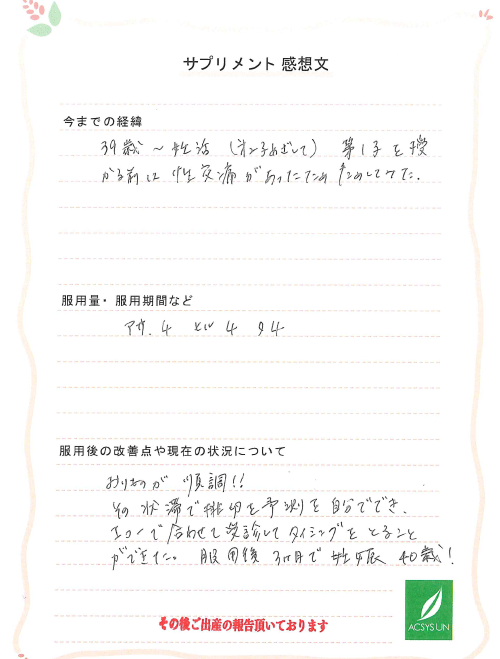 サプリメント 感想文
今までの経緯
39歳〜妊活 (オンナ子めざして) 第1子を授
かる前は性交痛があったため ためしてみた.
服用量・服用期間など
アサ. 4 ヒル 4 夕4
服用後の改善点や現在の状況について
おりものが 順調!!
その状態で排卵を予測を自分ででき.
エコーで合わせて受診してタイミングをとること
ができた. 服用後 3ヶ月で妊娠 40歳!
その後ご出産の報告頂いております
ACSYS LIN